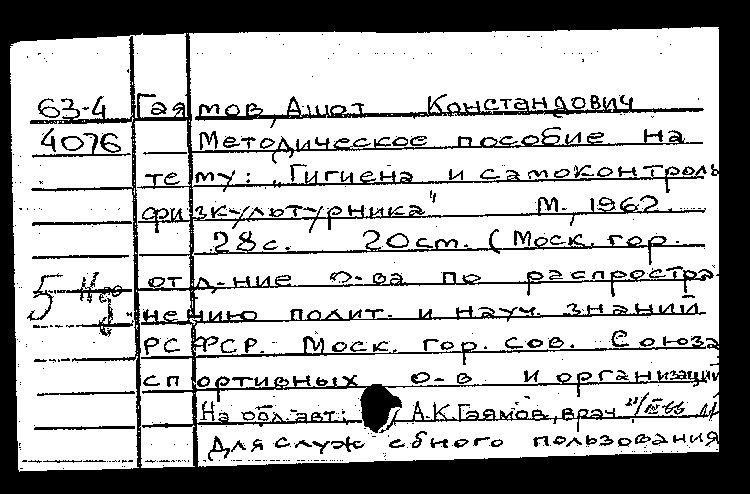 63-4 Гаямов, Ашот Константович
4076 Методическое пособие на
тему: „Гигиена и самоконтроль
физкультурника" М., 1962.
28с. 20ст. (Моск. гор.
отд-ние о-ва по распростра-
5 нению полит. и науч. знаний
РСФСР. Моск. гор. сов. Союза
спортивных о-в и организаций
На обл. авт.: А.К. Гаямов, врач
Для служебного пользования